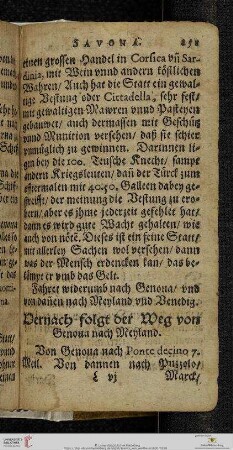 SAVONA.
einen grossen Handel in Corsica vñ Sar-
dinia, mit Wein vnnd andern köstlichen
Wahren/ Auch hat die Statt ein gewal-
tige Vestung oder Cittadella, sehr fest/
mit gewaltigen Mawren vnnd Pasteyen
gebauwet/ auch dermassen mit Geschütz
vnnd Munition versehen/ daß sie schier
vnmüglich zu gewinnen. Darinnen li-
gen bey die 100. Teusche Knecht/ sampt
andern Kriegsleuten/ dañ der Türck zum
offtermalen mit 40.50. Galleen dabey ge-
streifft/ der meinung die Vestung zu ero-
bern/ aber es ihme jederzeit gefehlet hat/
dann es wird gute Wacht gehalten/ wie
auch von nöte. Dieses ist ein feine Statt/
mit allerley Sachen wol versehen/ dann
was der Mensch erdencken kan/ das be-
kömpt er vmb das Gelt.
Fahret widerumb nach Genoua/ vnd
von dañen nach Meyland vnd Venedig.
Hernach folgt der Weg von
Genoua nach Meyland.
Von Genoua nach Ponte decimo 7.
Meil. Von dannen nach Puzzolo/
L vj Marck/